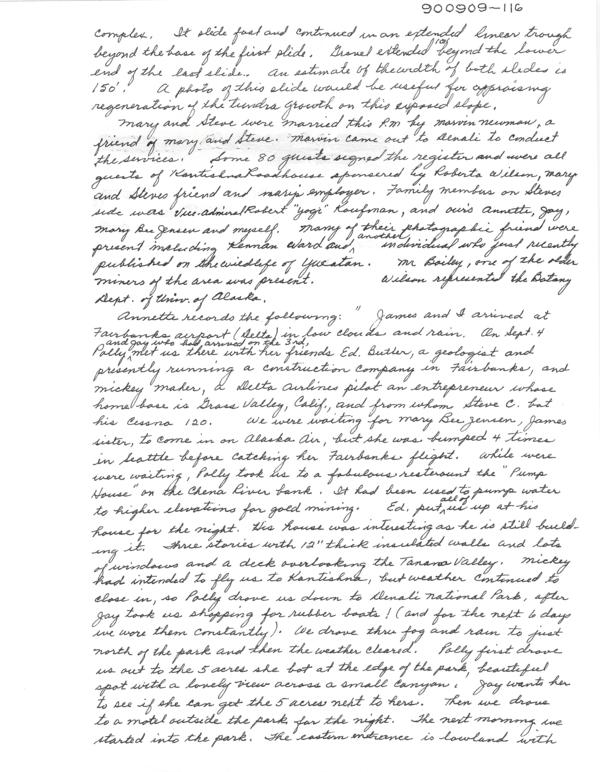 900909-116
complex. It slide fast and continued in an extended linear trough
beyond the base of the first slide. Gravel extended 100' beyond the lower
end of the last slide. An estimate of the width of both slides is
150'. A photo of this slide would be useful for appraising
regeneration of the tundra growth on this exposed slope.
Mary and Steve were married this P.M. by Marvin Newman, a
friend of Mary and Steve. Marvin came out to Denali to conduct
the services. Some 80 guests signed the register and were all
guests of Kantishna Roadhouse sponsered by Roberta Wilson, Mary
and Steves friend and Mary's employer. Family members on Steves
side was Vice-Admiral Robert "Yogi" Kaufman, and ours Annette, Jay,
Mary Bee Jensen and myself. Many of their photographic friend were
present including Kennan Ward and, another individual who just recently
published on the wildlife of Yucatan. Mr Bailey, one of the older
miners of the area was present. Wilson represents the Botany
Dept. of Univ. of Alaska.
Annette records the following: " James and I arived at
Fairbanks airport (Delta) in low clouds and rain. On Sept. 4
Polly, and Jay who had arrived on the 3rd, met us there with her friends Ed. Butler, a geologist and
presently running a construction company in Fairbanks, and
Mickey Maher, a Delta Airlines pilot an entrepreneur whose
home base is Grass Valley, Calif., and from whom Steve C. bot
his Cessna 120. We were waiting for Mary Bee Jensen, James
sister, to come in on Alaska Air, but she was bumped 4 times
in Seattle before catching her Fairbanks flight. While were
were waiting, Polly took us to a fabulous resteraunt the "Pump
House" on the Chena River bank. It had been used to pump water
to higher elevations for gold mining. Ed. put all of us up at his
house for the night. His house was interesting as he is still build-
ing it. Three stories with 12" thick insulated walls and lots
of windows and a deck overlooking the Tanana Valley. Mickey
had intended to fly us to Kantishna, but weather continued to
close in, so Polly drove us down to Denali National Park, after
Jay took us shopping for rubber boots! (and for the next 6 days
we wore them constantly). We drove thru fog and rain to just
north of the park and then the weather cleared. Polly first drove
us out to the 5 acres she bot at the edge of the park, beautiful
spot with a lovely view across a small canyon. Jay wants her
to see if she can get the 5 acres next to hers. Then we drove
to a motel outside the park for the night. The next morning we
started into the park. The eastern entrance is lowland with